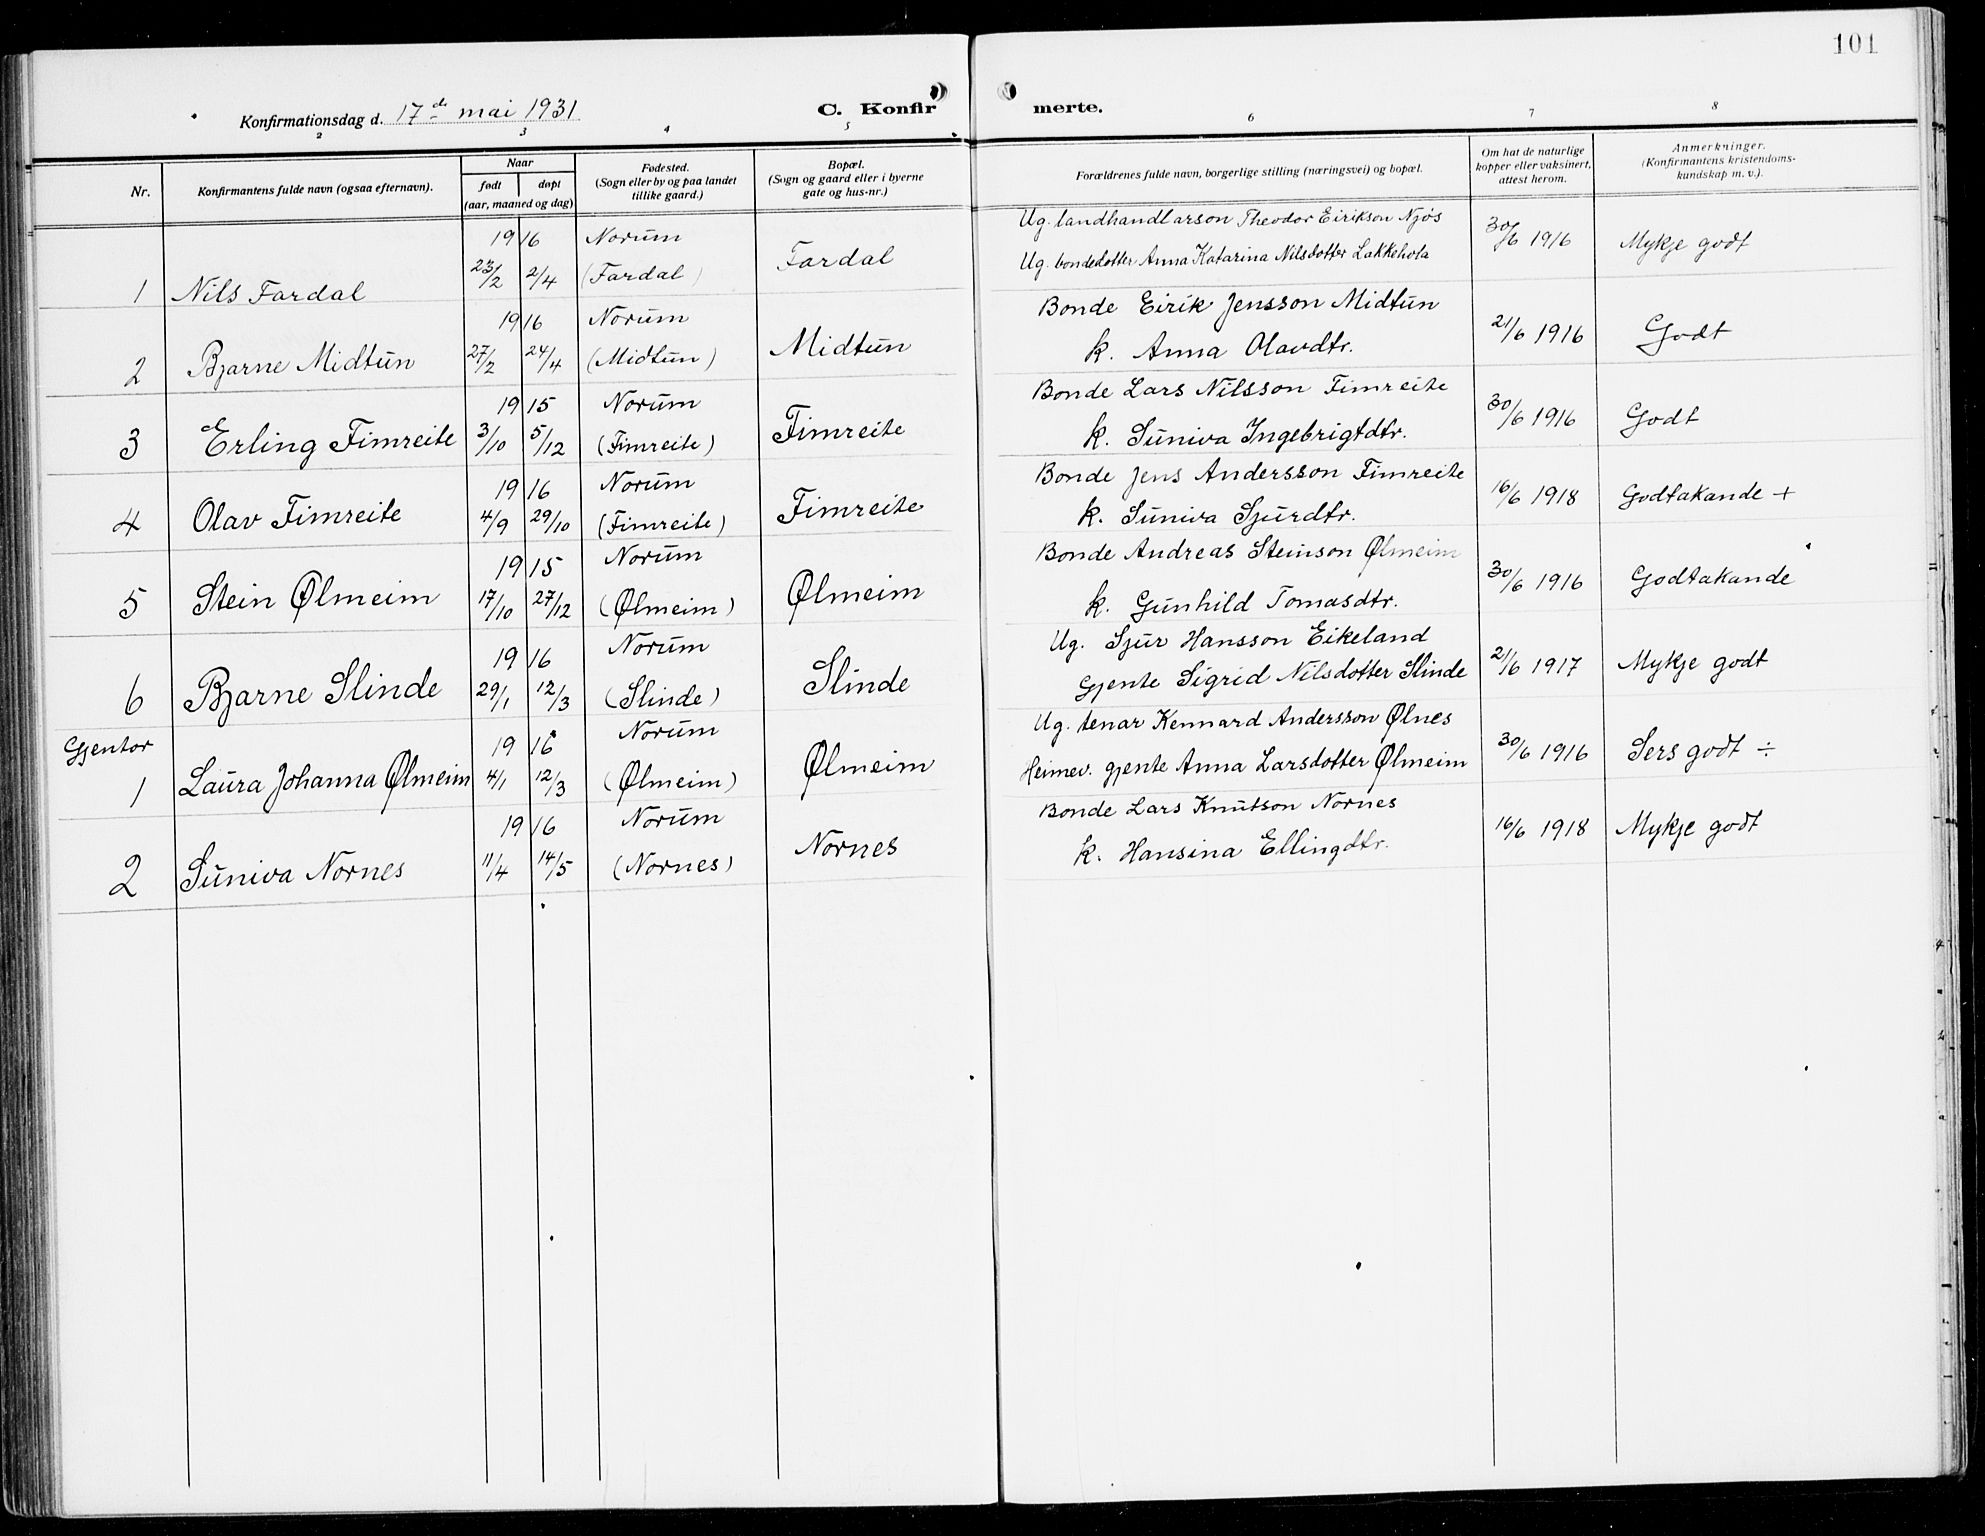 101
Konfirmationsdag d. 17de mai 1931 C. Konfirmerte.
2 3 4 5 6 7 8
Nr.
Konfirmantens fulde navn (ogsaa efternavn).
Naar
født døpt
(aar, maaned og dag)
Fødested.
(Sogn eller by og paa landet
tillike gaard.)
Bopæl.
(Sogn og gaard eller i byerne
gate og hus-nr.)
Forældrenes fulde navn, borgerlige stilling (næringsvei) og bopæl.
Om hat de naturlige
kopper eller vaksinert,
attest herom.
Anmerkninger.
(Konfirmantens kristendoms-
kundskap m. v.).
19 16 Norum Ug. landhandlarson Theodor Eirikson Njøs
1 Nils Fardal 23/2 2/4 (Fardal) Fardal Ug. bondedotter Anna Katarina Nilsdotter Lakkehola 30/6 1916 Mykje godt
19 16 Norum Bonde Eirik Jensson Midtun
2 Bjarne Midtun 27/2 24/4 (Midtun) Midtun k. Anna Olavdtr. 21/6 1916 Godt
19 15 Norum Bonde Lars Nilsson Fimreite
3 Erling Fimreite 3/10 5/12 (Fimreite) Fimreite k. Suniva Ingebrigtdtr. 30/6 1916 Godt
19 16 Norum Bonde Jens Andersson Fimreite
4 Olav Fimreite 4/9 29/10 (Fimreite) Fimreite k. Suniva Sjurdtr. 16/6 1918 Godtakande +
19 15 Norum Bonde Andreas Steinson Ølmeim
5 Stein Ølmeim 17/10 27/12 (Ølmeim) Ølmeim k. Gunhild Tomasdtr. 30/6 1916 Godtakande
19 16 Norum Ug. Sjur Hansson Eikeland
6 Bjarne Slinde 29/1 12/3 (Slinde) Slinde Gjente Sigrid Nilsdotter Slinde 21/6 1917 Mykje godt
Gjentor
19 16 Norum Ug. tenar Kennard Andersson Ølnes
1 Laura Johanna Ølmeim 4/1 12/3 (Ølmeim) Ølmeim Heimev. gjente Anna Larsdotter Ølmeim 30/6 1916 Sers godt ÷
19 16 Norum Bonde Lars Knutson Nornes
2 Suniva Nornes 11/4 14/5 (Nornes) Nornes k. Hansina Ellingdtr. 16/6 1918 Mykje godt